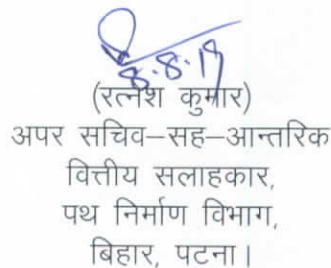 8.8.19
(रत्नेश कुमार)
अपर सचिव–सह–आन्तरिक
वित्तीय सलाहकार,
पथ निर्माण विभाग,
बिहार, पटना।